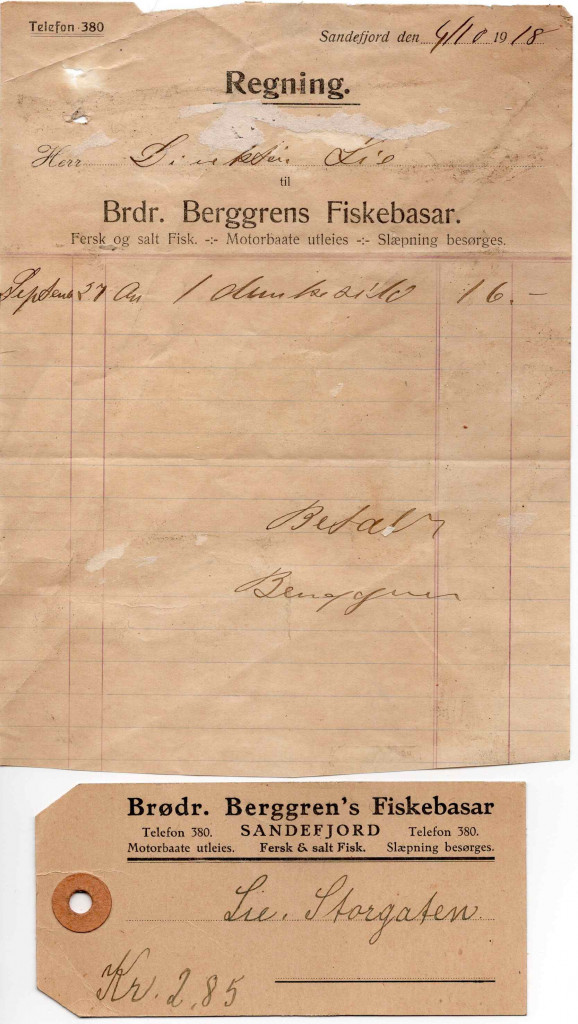 Telefon 380
Sandefjord den 4/10 1918
Regning.
Herr Direktør Lie
til
Brdr. Berggrens Fiskebasar.
Fersk og salt Fisk. -:- Motorbaate utleies -:- Slæpning besørges.
27 An 1 dunk sild 16.-
Betalt
Berggren
Brødr. Berggren's Fiskebasar
Telefon 380. SANDEFJORD Telefon 380.
Motorbaate utleies. Fersk & salt Fisk. Slæpning besørges.
Lie. Storgaten.
Kr. 2,85